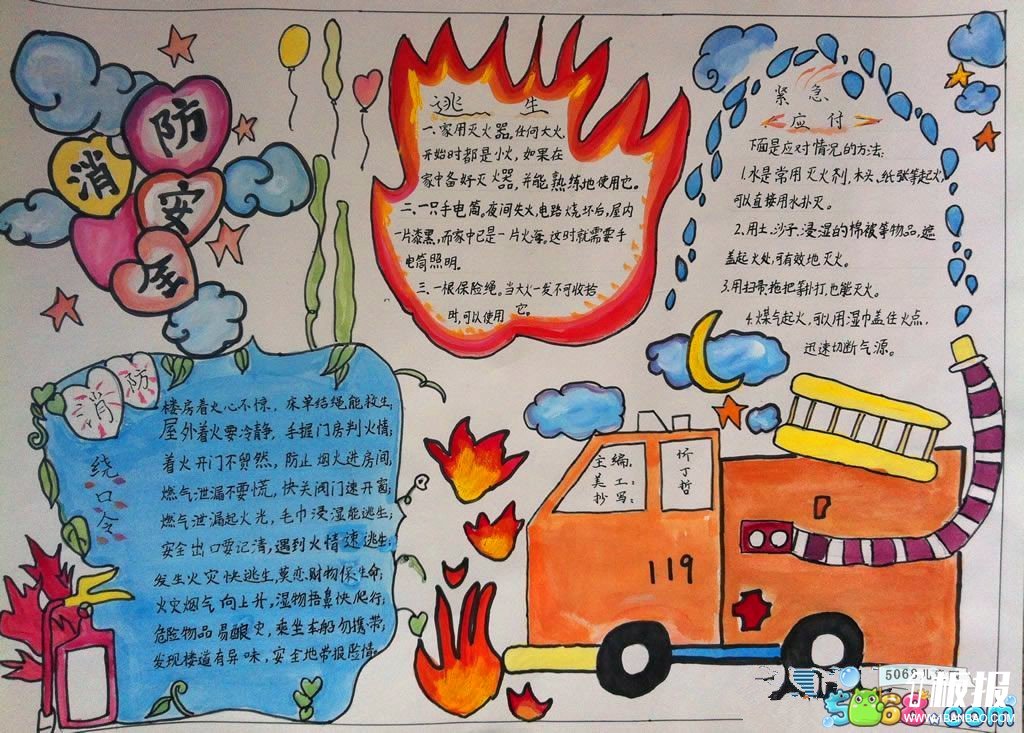 消防安全
逃生
一、家用灭火器。任何大火,
开始时都是小火,如果在
家中备好灭火器,并能熟练地使用它。
二、一只手电筒。夜间失火,电路烧坏后,屋内
一片漆黑,而家中已是一片火海,这时就需要手
电筒照明。
三、一根保险绳。当大火一发不可收拾
时,可以使用它。
紧急
应付
下面是应对情况的方法:
1.水是常用灭火剂,木头、纸张等起火,
可以直接用水扑灭。
2.用土、沙子、浸湿的棉被等物品,遮
盖起火处,可有效地灭火。
3.用扫帚、拖把等扑打,也能灭火。
4.煤气起火,可以用湿巾盖住火点,
迅速切断气源。
消防
绕口令
楼房着火心不惊,床单结绳能救生;
屋外着火要冷静,手握门房判火情;
着火开门不贸然,防止烟火进房间;
燃气泄漏不要慌,快关阀门速开窗;
燃气泄漏起火光,毛巾浸湿能逃生;
安全出口要记清,遇到火情速逃生;
发生火灾快逃生,莫恋财物保生命;
火灾烟气向上升,湿物捂鼻快爬行;
危险物品易酿灾,乘坐车船勿携带;
发现楼道有异味,安全地带报险情。
主编:
美工:
抄写:
价丁哲
119
5068儿
板报
5068.com
WWW.1BANBAO.COM